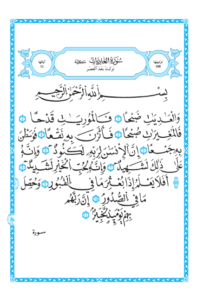 سُورَةُ العَادِيَاتِ مَكِّيَّة
نزلت بعد العصر
بِسْمِ اللَّهِ الرَّحْمَٰنِ الرَّحِيمِ
وَالْعَٰدِيَٰتِ ضَبْحًا فَالْمُورِيَٰتِ قَدْحًا
فَالْمُغِيرَٰتِ صُبْحًا فَأَثَرْنَ بِهِ نَقْعًا فَوَسَطْنَ
بِهِ جَمْعًا إِنَّ الْإِنسَٰنَ لِرَبِّهِ لَكَنُودٌ وَإِنَّهُ
عَلَىٰ ذَٰلِكَ لَشَهِيدٌ وَإِنَّهُ لِحُبِّ الْخَيْرِ لَشَدِيدٌ
أَفَلَا يَعْلَمُ إِذَا بُعْثِرَ مَا فِي الْقُبُورِ وَحُصِّلَ
مَا فِي الصُّدُورِ إِنَّ رَبَّهُم
بِهِمْ يَوْمَئِذٍ لَّخَبِيرٌ
سورة